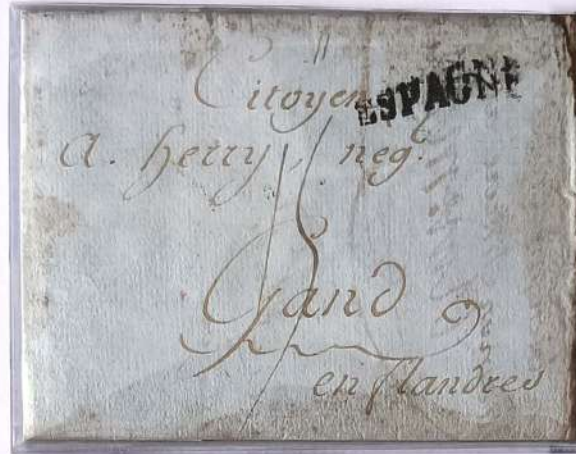 Citoyen
ESPAGNE
A. herry, negt.
Gand
en flandres